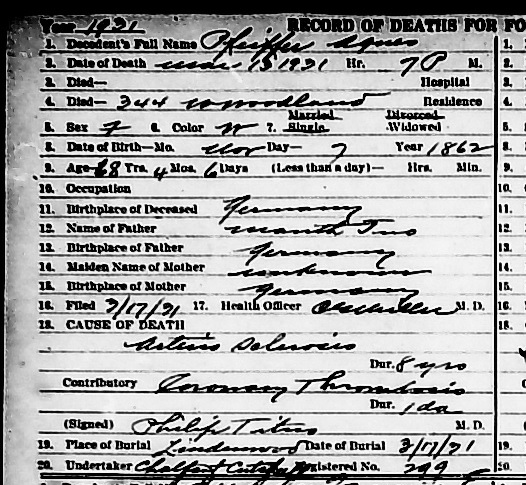 Year 1931 RECORD OF DEATHS FOR FO
1. Decedent's Full Name Pfeiffer Agnes 1.
2. Date of Death Mar 13 1931 Hr. 7 P M. 2.
3. Died— Hospital 3.
4. Died— 344 Woodland Residence 4.
5. Sex F 6. Color W 7. Married Single Divorced Widowed 5.
8. Date of Birth—Mo. Nov Day— 7 Year 1862 8.
9. Age 68 Yrs. 4 Mos. 6 Days (Less than a day)— Hrs. Min. 9.
10. Occupation 10.
11. Birthplace of Deceased Germany 11.
12. Name of Father 12.
13. Birthplace of Father Germany 13.
14. Maiden Name of Mother unknown 14.
15. Birthplace of Mother Germany 15.
16. Filed 3/17/31 17. Health Officer M. D. 16.
18. CAUSE OF DEATH 18.
Arterio Sclerosis
Dur. 8 yrs
Contributory Coronary Thrombosis
Dur. 1 da
(Signed) Philip Titus M. D.
19. Place of Burial Lindenwood Date of Burial 3/17/31 19.
20. Undertaker Chalfant Registered No. 299 20.